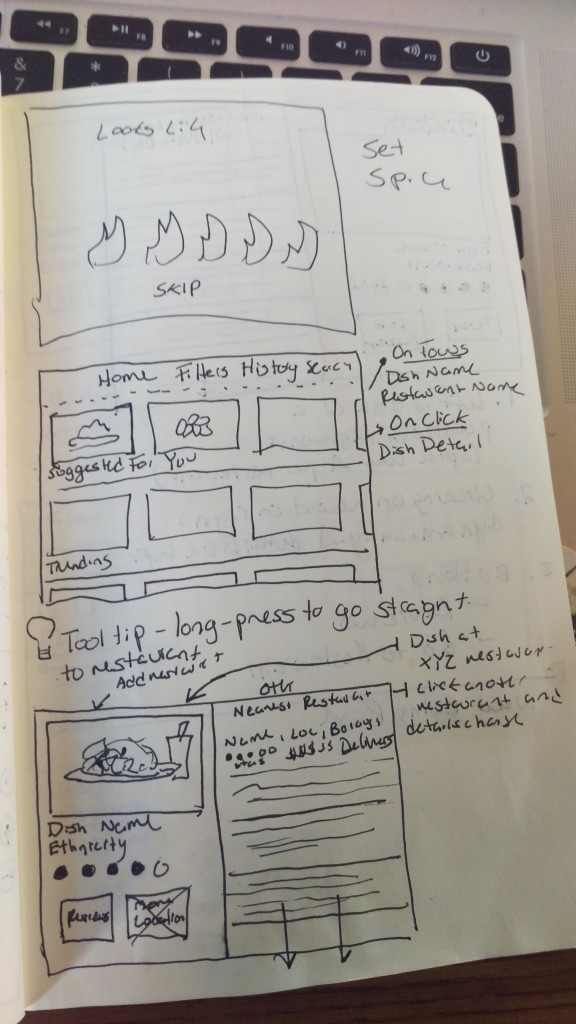 F7
F8
F9
F10
F11
F12
&
7
*
(
Set
SKIP
Home Filters History Search
Suggested For You
Trending
On Touch
Dish Name
Restaurant Name
On Click
Dish Detail
Tooltip - long-press to go straight
to restaurant
Add restaurant
Dish at
XYZ restaurant
click another
restaurant and
details change
Other
Nearest Restaurant
Name, Loc,
$$$$$ Delivery
Dish Name
Ethnicity
Reviews
More
Location